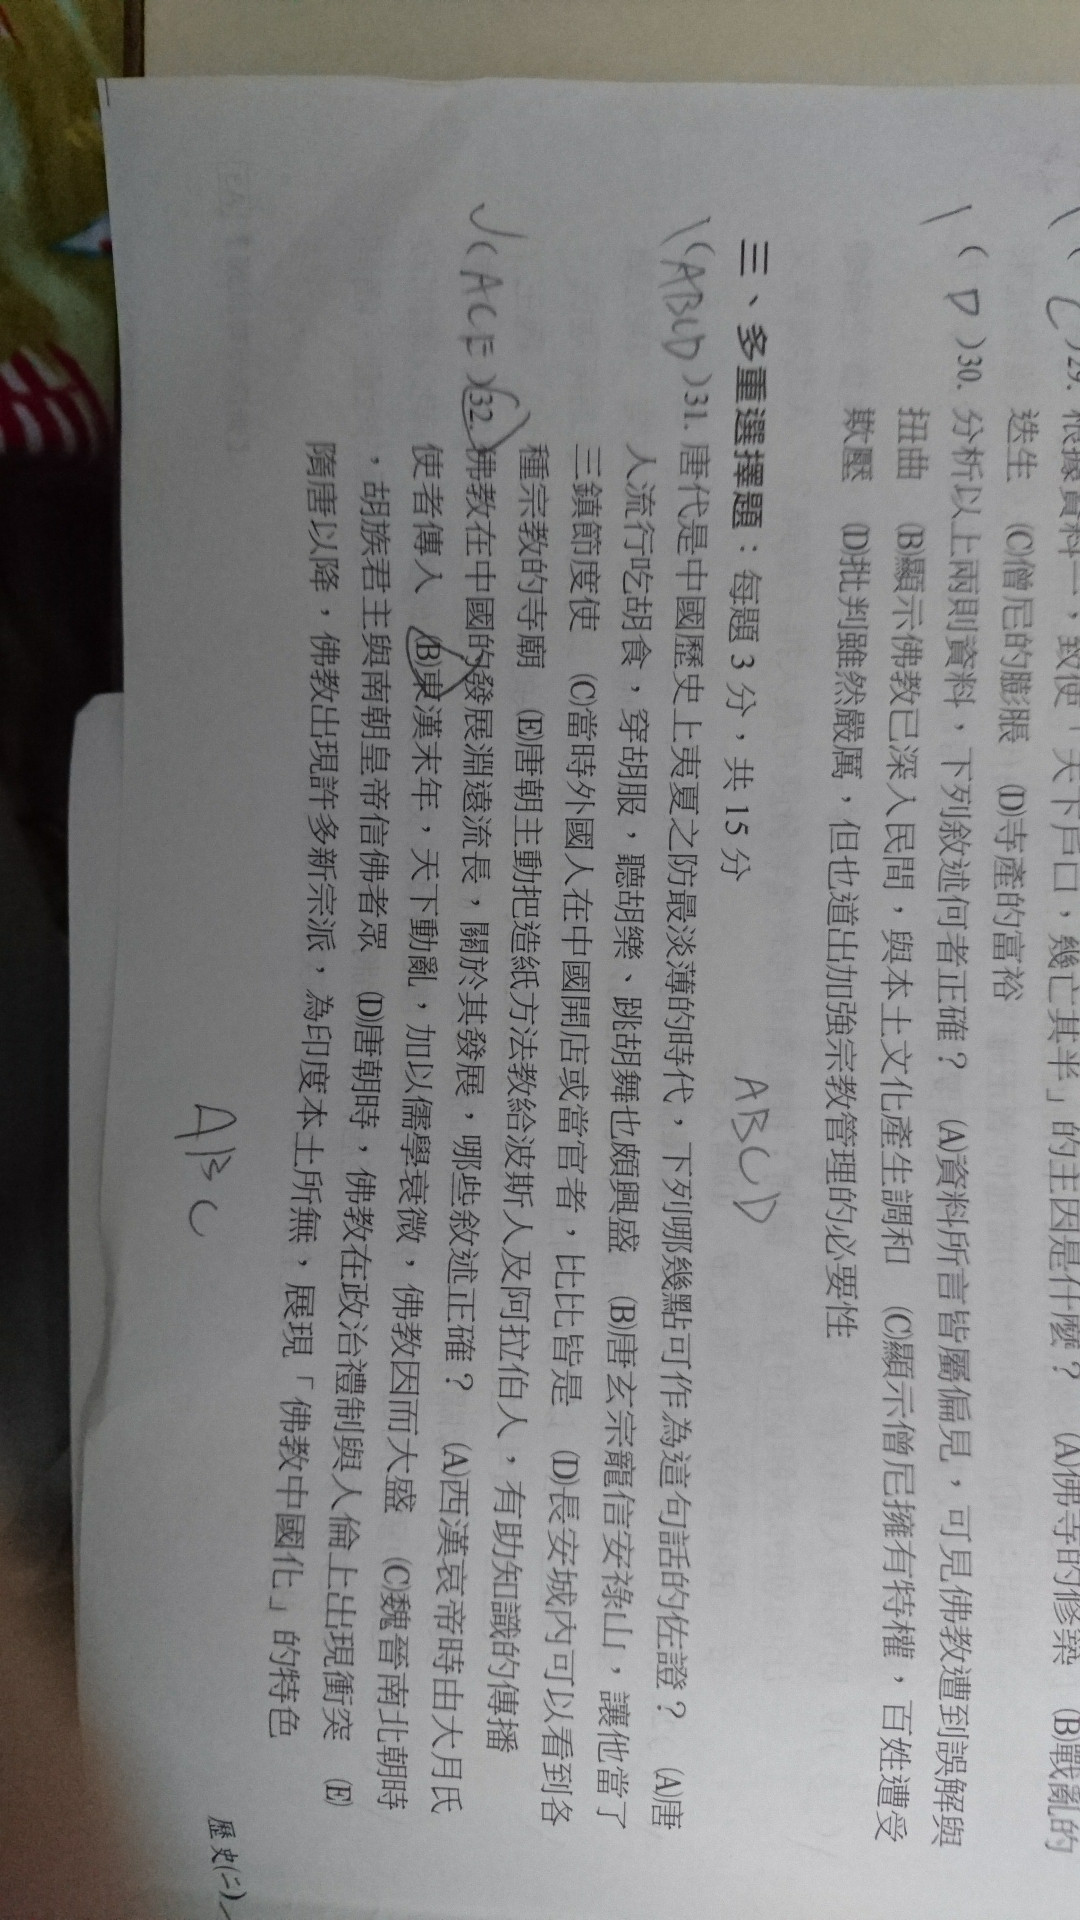 (C)29. 根據資料一，致使「天下戶口，幾亡其半」的主因是什麼？ (A)佛寺的修築 (B)戰亂的
迭生 (C)僧尼的膨脹 (D)寺產的富裕
( D )30. 分析以上兩則資料，下列敘述何者正確？ (A)資料所言皆屬偏見，可見佛教遭到誤解與
扭曲 (B)顯示佛教已深入民間，與本土文化產生調和 (C)顯示僧尼擁有特權，百姓遭受
欺壓 (D)批判雖然嚴厲，但也道出加強宗教管理的必要性
三、多重選擇題：每題 3 分，共 15 分
ABCD
(ABCD)31. 唐代是中國歷史上夷夏之防最淡薄的時代，下列哪幾點可作為這句話的佐證？ (A)唐
人流行吃胡食，穿胡服，聽胡樂、跳胡舞也頗興盛 (B)唐玄宗寵信安祿山，讓他當了
三鎮節度使 (C)當時外國人在中國開店或當官者，比比皆是 (D)長安城內可以看到各
種宗教的寺廟 (E)唐朝主動把造紙方法教給波斯人及阿拉伯人，有助知識的傳播
(ACE)32. 佛教在中國的發展淵遠流長，關於其發展，哪些敘述正確？ (A)西漢哀帝時由大月氏
使者傳入 (B)東漢末年，天下動亂，加以儒學衰微，佛教因而大盛 (C)魏晉南北朝時
，胡族君主與南朝皇帝信佛者眾 (D)唐朝時，佛教在政治禮制與人倫上出現衝突 (E)
隋唐以降，佛教出現許多新宗派，為印度本土所無，展現「佛教中國化」的特色
ABC
歷史(二)